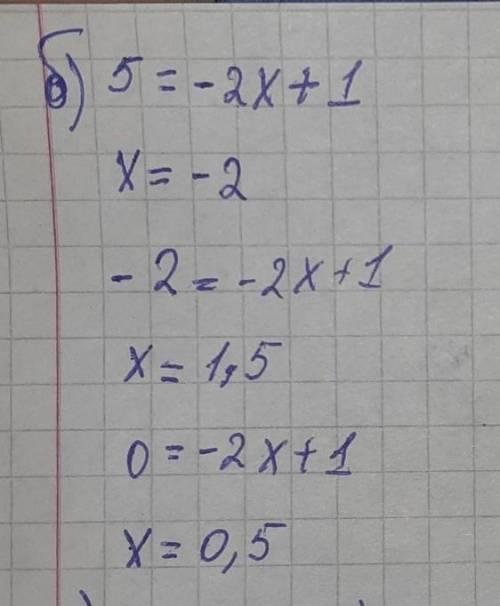 б) 5 = -2x + 1
x = -2
- 2 = -2x + 1
x = 1,5
0 = -2x + 1
x = 0,5